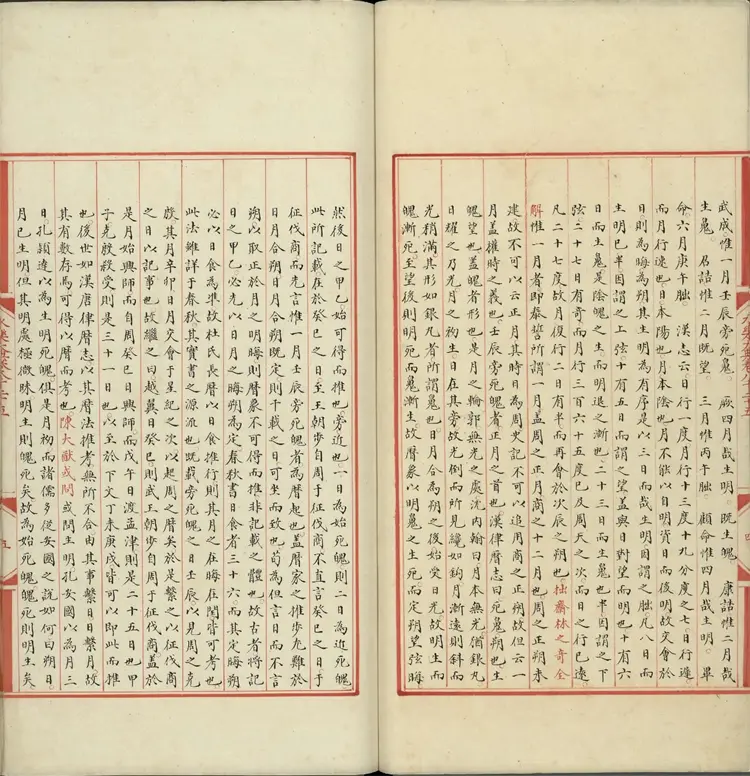 武成惟一月壬辰旁死魄 厥四月哉生明 既生魄 康誥惟二月哉
生魄 召誥惟二月既望 三月惟丙午朏 顧命惟四月哉生明 畢
命六月庚午朏 漢志云日行一度月行十三度十九分度之七日行遲
而月行速也日本陽也月本陰也月不能以自明資日而後明故交會於
日則為晦為朔其生明為有序是以三日而哉生明因謂之朏凡八日而
生明已半因謂之上弦十有五日而謂之望蓋與日對望而明也十有六
日而生魄是陰魄之生而明退之漸也二十三日而生魄也半因謂之下
弦二十七日有奇而月行三百六十五度已及周天之次而日之行已遠
凡二十七度故月復行二日有半而再會於次辰之朔也拙齋林之奇全
解惟一月者即泰誓所謂一月蓋周之正月商之十二月也周之正朔未
建故不可以云正月其時日為周史記不可以追用商之正朔故但云一
月蓋權時之義也壬辰旁死魄者正月之首也漢律曆志曰死魄朔也生
魄望也蓋魄者形也是月之輪郭無光之處沈內翰曰月本無光猶銀丸
日耀之乃光月之初生日在其旁故光倒而所見纔如鈎月漸遠則斜而
光稍滿其形如銀丸者所謂魄也日月合為朔之後始受日光故明生而
魄漸死至望後則明死而魄漸生故曆象以明魄之生死而定朔望弦晦
然後日之甲乙始可得而推也旁近也一日為始死魄則二日為近死魄
此所記載在於癸巳之日至王朝步自周于征伐商不直言癸巳之日于
征伐商而先言惟一月壬辰旁死魄者為曆起也蓋曆家之推步尤難於
日月合朔日月合朔既定則千載之日可坐而致也苟為但言日而不言
朔以取正於月之明晦則曆象不可得而推非記載之體也故古者將記
日之甲乙必先以日月之晦朔為定春秋書日食者三十六而其定晦朔
必以日食為準故杜氏長曆以日食推行則其月之在晦在閏皆可考也
此法雖詳于春秋其實書之源流也既載旁死魄之日壬辰以見周之克
商其月辛卯日月交會于星紀之次以起周之曆矣於是繫之以征伐商
之日以記事也故繼之曰越翼日癸巳則武王朝步自周于征伐商蓋於
是月始興師而自周癸巳日興師而戊午日渡孟津則是二十五日也甲
子克殷殺受則是三十一日也以至於下文丁未庚戌皆可以即此而推
也後世如漢唐律曆志以其曆法推考無所不合由其事繫日日繫月故
其有數存焉可得以曆而考也陳大猷或問或問生明孔安國以為月三
日孔穎達以為生明死魄俱是月初而諸儒多從安國之說如何曰朔日
月已生明但其明處極微昧明生則魄死矣故為始死魄魄死則明生矣